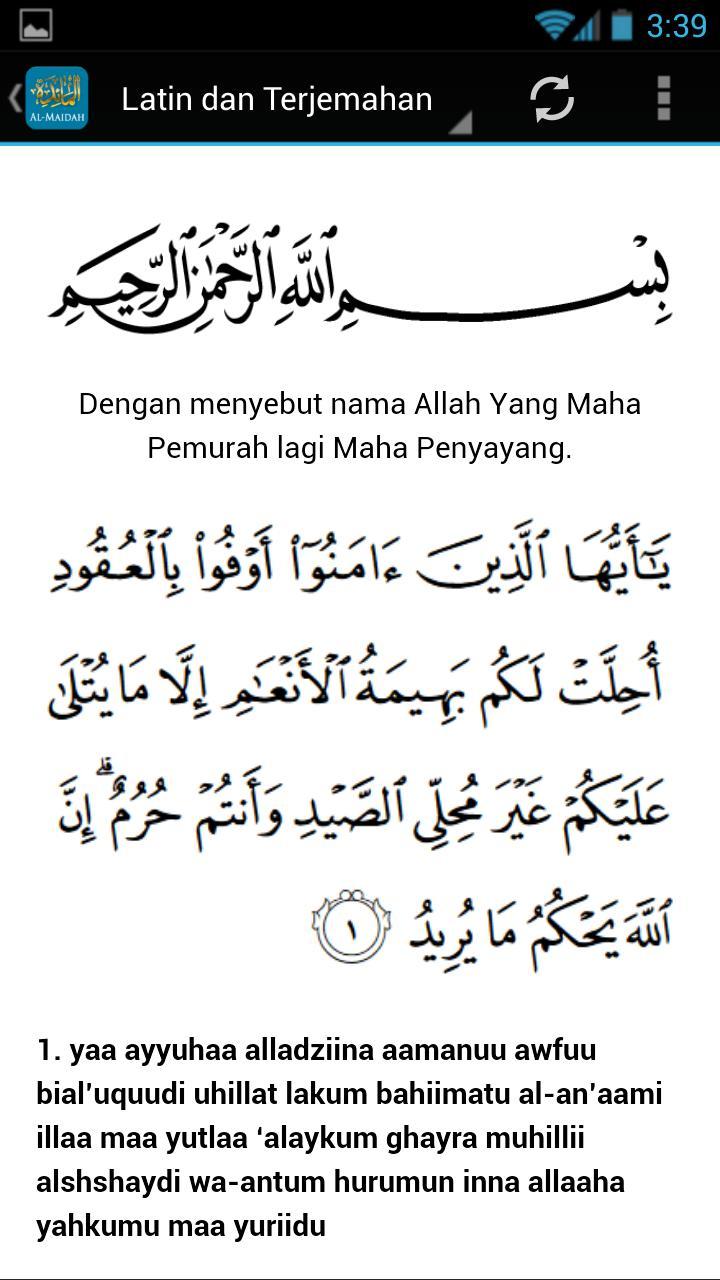 3:39
المائدة
AL-MAIDAH
Latin dan Terjemahan
بِسْمِ ٱللَّهِ ٱلرَّحْمَٰنِ ٱلرَّحِيمِ
Dengan menyebut nama Allah Yang Maha
Pemurah lagi Maha Penyayang.
يَٰٓأَيُّهَا ٱلَّذِينَ ءَامَنُوٓا۟ أَوْفُوا۟ بِٱلْعُقُودِ
أُحِلَّتْ لَكُم بَهِيمَةُ ٱلْأَنْعَٰمِ إِلَّا مَا يُتْلَىٰ
عَلَيْكُمْ غَيْرَ مُحِلِّى ٱلصَّيْدِ وَأَنتُمْ حُرُمٌ ۗ إِنَّ
ٱللَّهَ يَحْكُمُ مَا يُرِيدُ ١
1. yaa ayyuhaa alladziina aamanuu awfuu
bial’uquudi uhillat lakum bahiimatu al-an’aami
illaa maa yutlaa ‘alaykum ghayra muhillii
alshshaydi wa-antum hurumun inna allaaha
yahkumu maa yuriidu